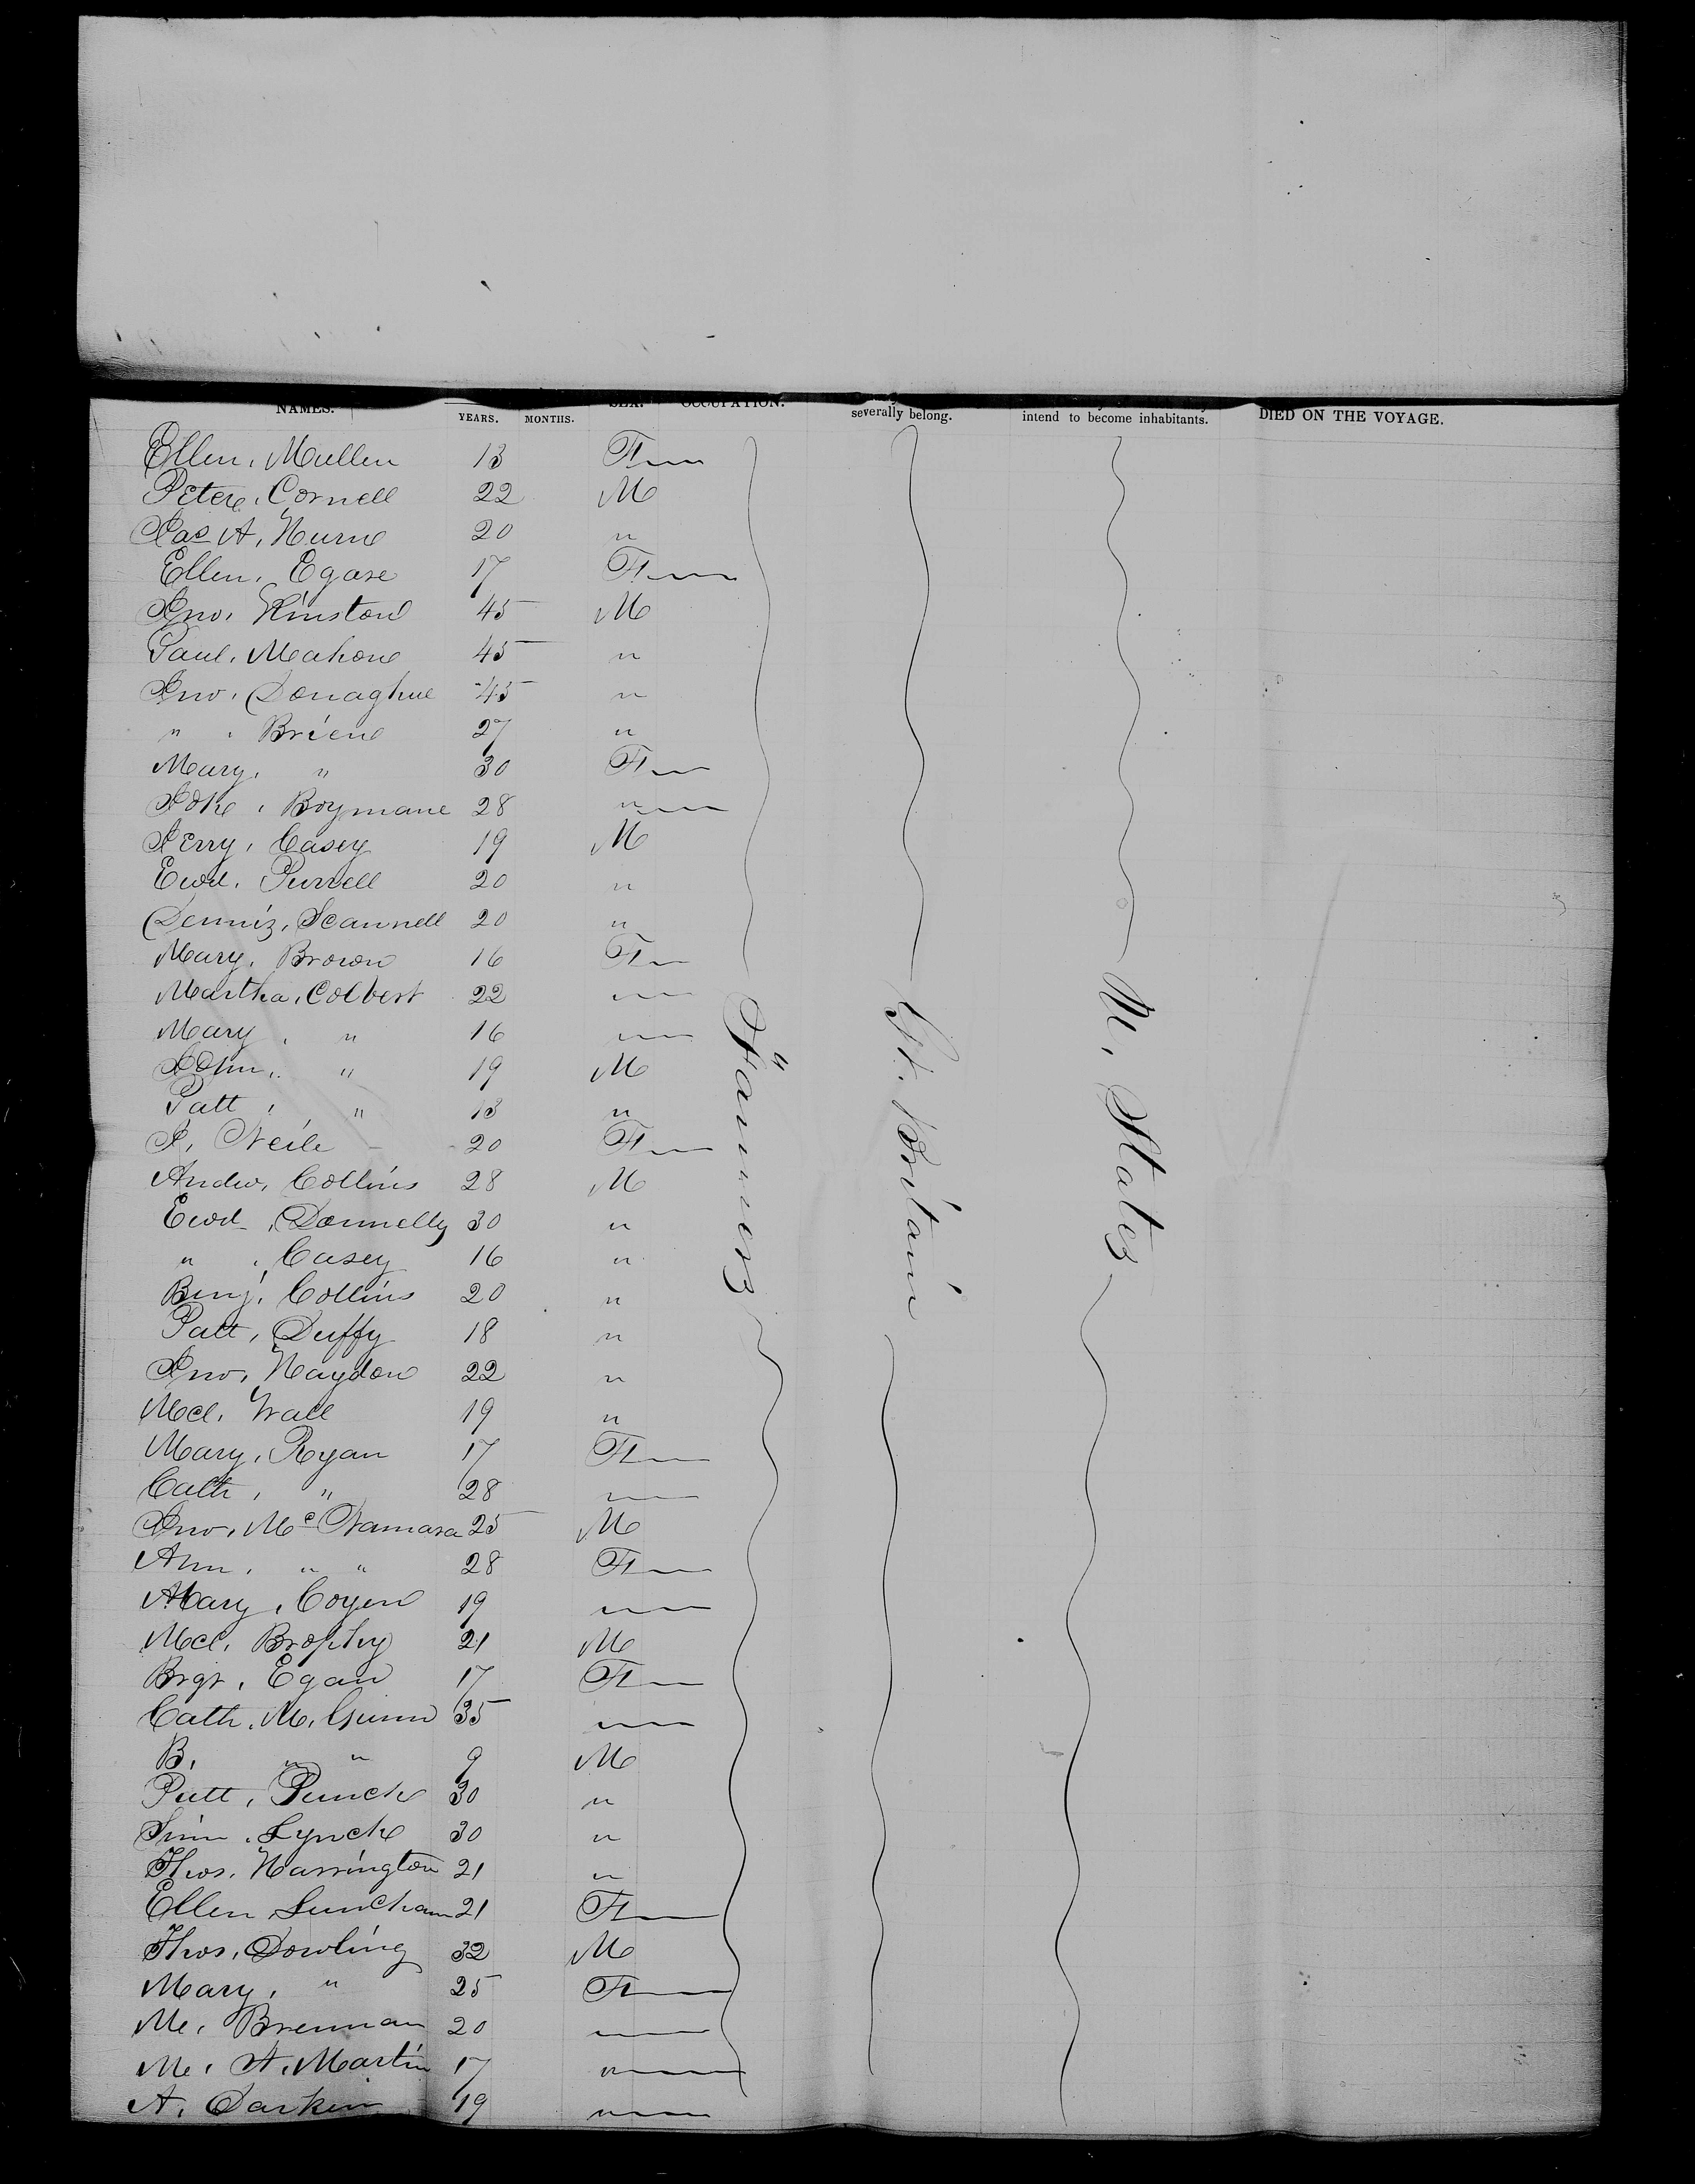 NAMES. YEARS. MONTHS. SEX. OCCUPATION. severally belong. intend to become inhabitants. DIED ON THE VOYAGE.
Ellen, Mullen 13 F
Peter, Cornell 22 M
Jas A, Hurne 20 "
Ellen, Egare 17 F
Jno, Hinston 45 M
Paul, Mahone 45 "
Jno, Donaghue 45 "
" , Briene 27 "
Mary, " 30 F
Joke, Boymane 28 "
Jerry, Casey 19 M
Ewd. Purrell 20 "
Denniz, Scannell 20 "
Mary, Brown 16 F
Martha, Colbert 22 "
Mary, " 16 "
John, " 19 M
Patt, " 13 "
J, Neile 20 F
Andw, Collins 28 M
Ewd, Donnelly 30 "
" , Casey 16 "
Benj, Collins 20 "
Patt, Duffy 18 "
Jno, Haydon 22 "
Mcl, Wall 19 "
Mary, Ryan 17 F
Cath, " 28 "
Jno, Mc Namara 25 M
Ann, " " 28 F
Mary, Coyen 19 "
Mcl, Brophy 21 M
Brgt, Egan 17 F
Cath, M, Gunn 35 "
B, " " 9 M
Patt, Punch 30 "
Sim, Lynch 30 "
Thos, Harrington 21 "
Ellen Luncham 21 F
Thos, Dowling 32 M
Mary, " 25 F
Me, Brennan 20 "
Me, A, Martin 17 "
A, Darken 19 "
Farmerz
Gt. Britain
U. Statez